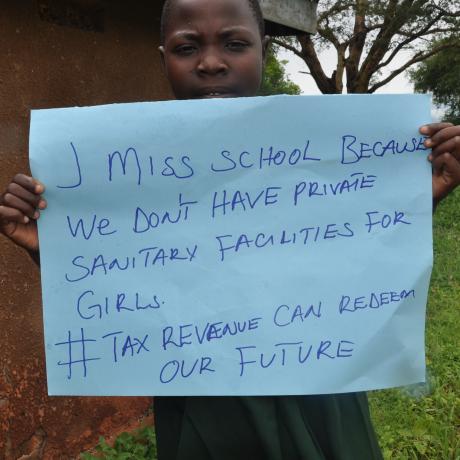 I MISS SCHOOL BECAUSE
WE DON'T HAVE PRIVATE
SANITARY FACILITIES FOR
GIRLS.
# TAX REVENUE CAN REDEEM
OUR FUTURE